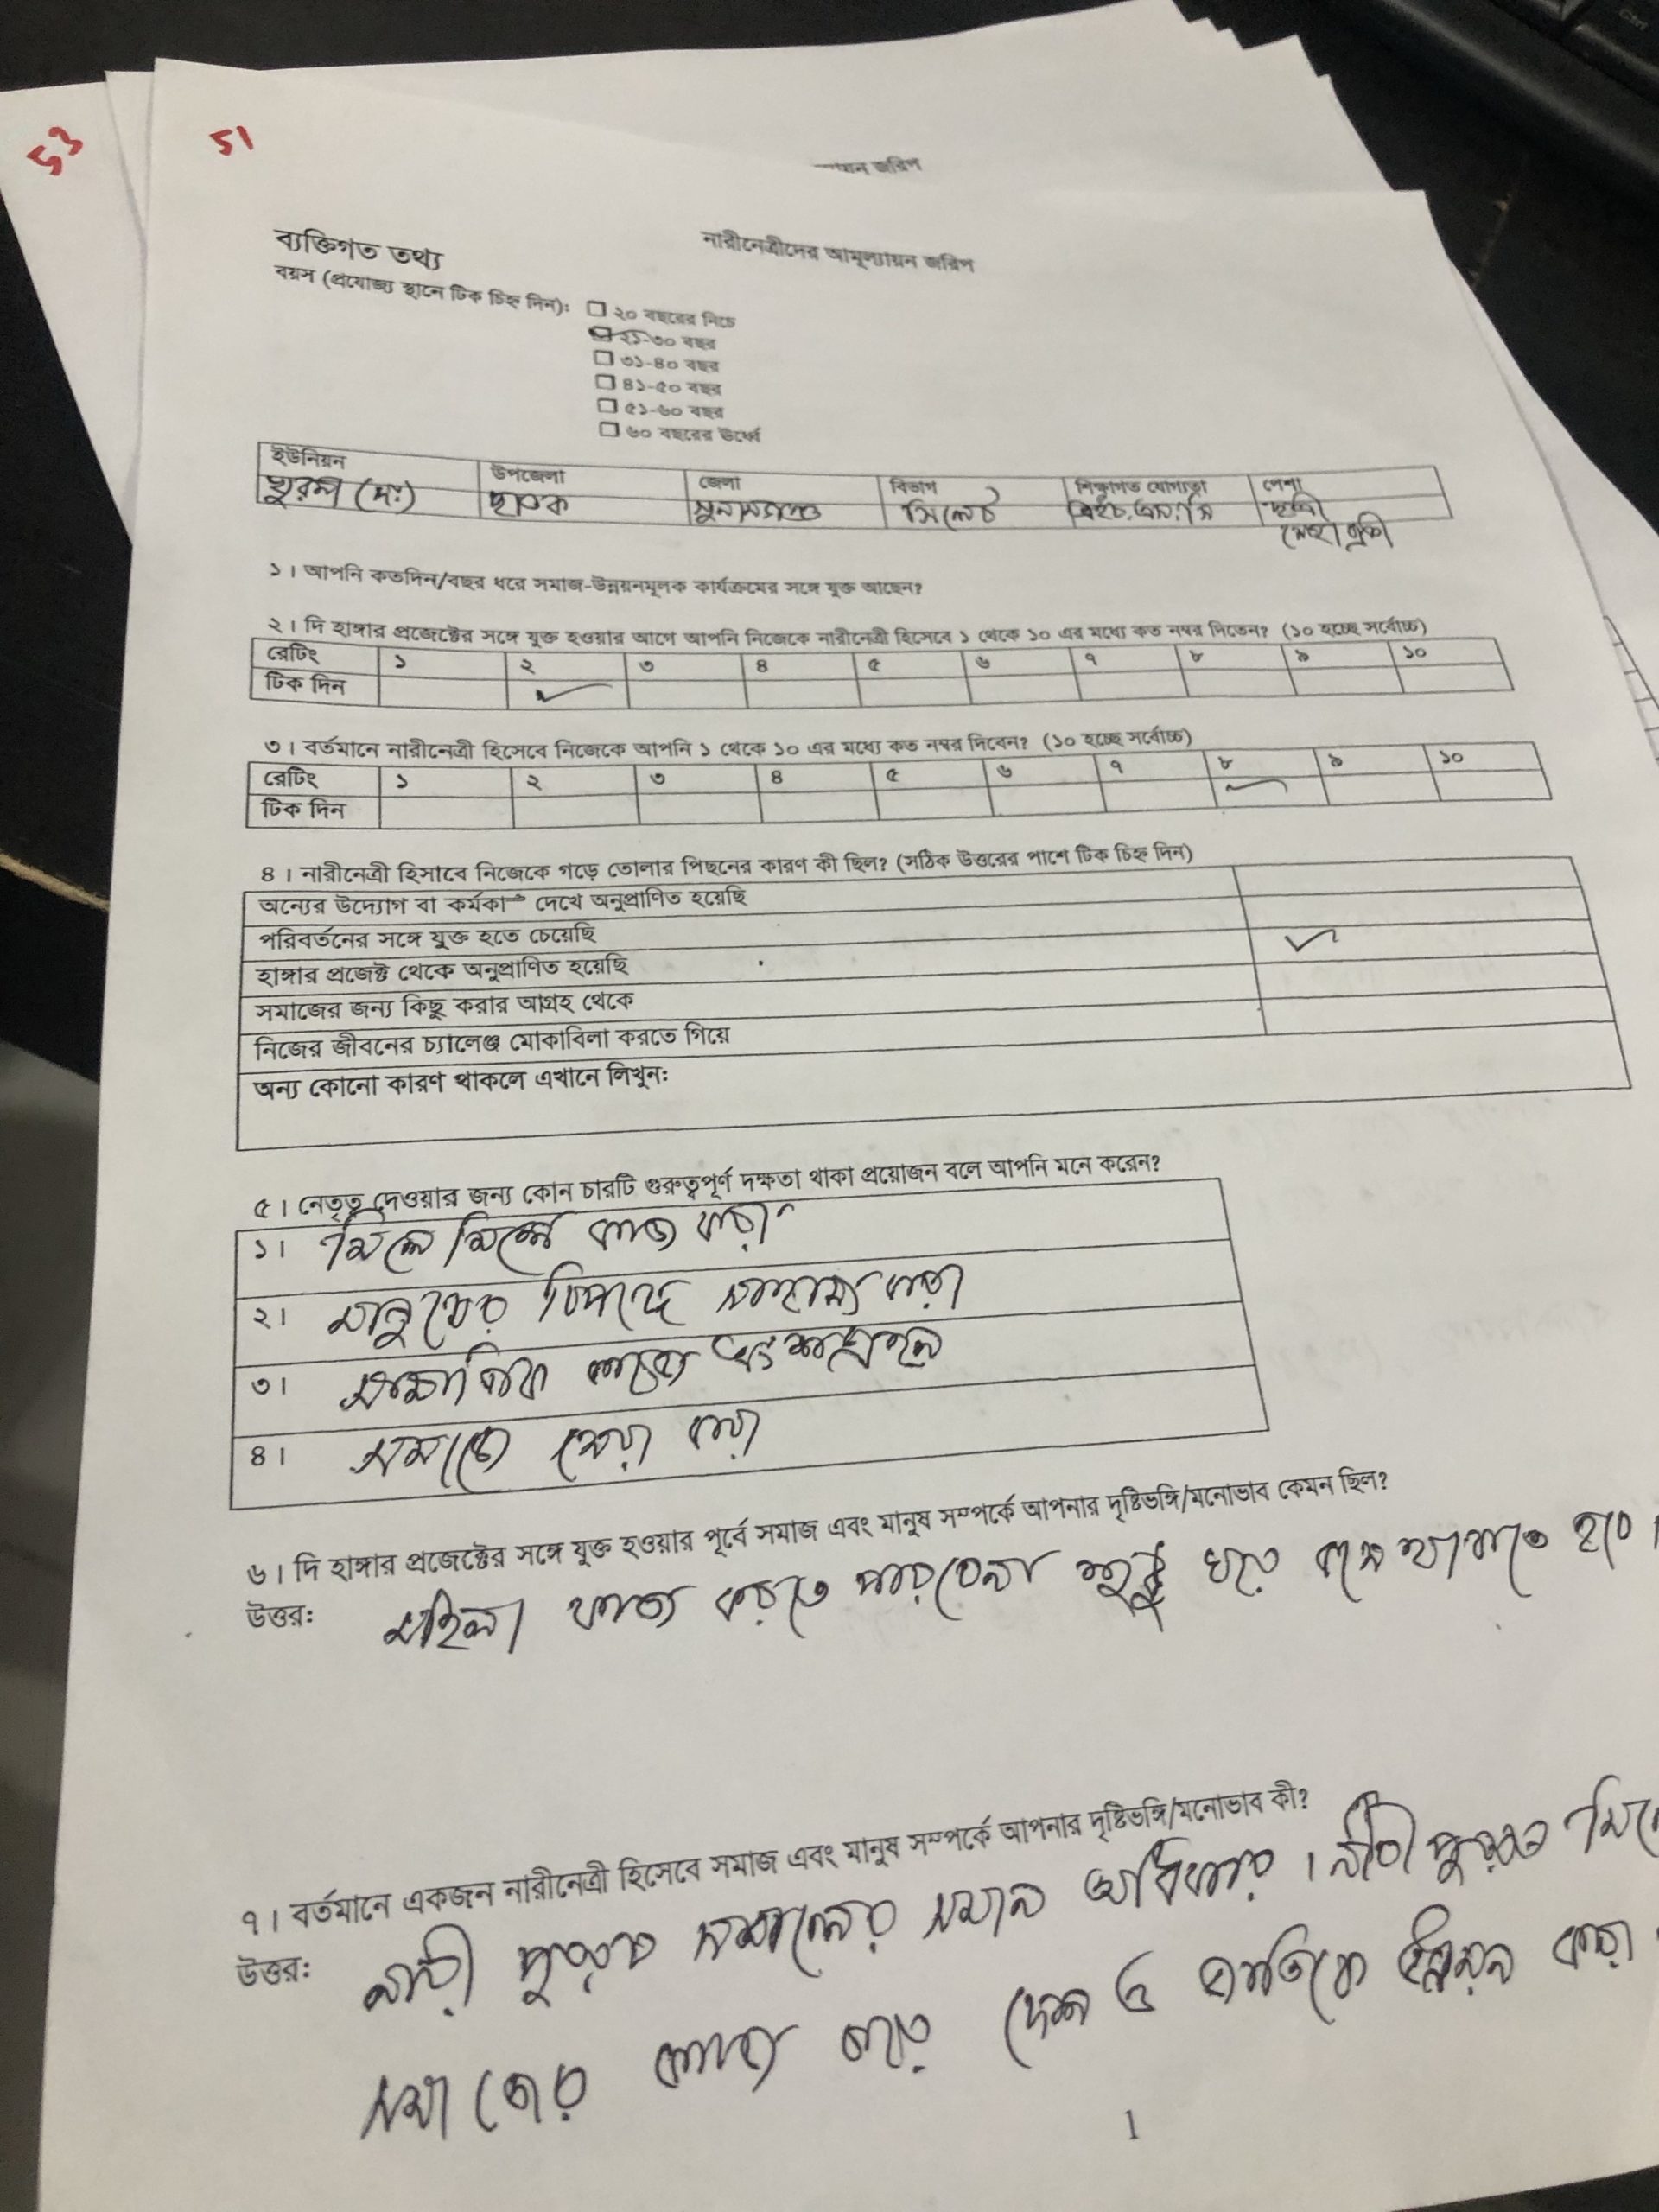 53
51
জরিপ
নারীনেত্রীদের আমূল্যায়ন জরিপ
ব্যক্তিগত তথ্য
বয়স (প্রযোজ্য স্থানে টিক চিহ্ন দিন)ঃ
২০ বছরের নিচে
২১-৩০ বছর
৩১-৪০ বছর
৪১-৫০ বছর
৫১-৬০ বছর
৬০ বছরের উর্ধ্বে
ইউনিয়ন উপজেলা জেলা বিভাগ শিক্ষাগত যোগ্যতা পেশা
(দঃ) ছাতক সুনামগঞ্জ সিলেট এইচ.এস.সি ছাত্রী
১। আপনি কতদিন/বছর ধরে সমাজ-উন্নয়নমূলক কার্যক্রমের সঙ্গে যুক্ত আছেন?
২। দি হাঙ্গার প্রজেক্টের সঙ্গে যুক্ত হওয়ার আগে আপনি নিজেকে নারীনেত্রী হিসেবে ১ থেকে ১০ এর মধ্যে কত নম্বর দিতেন? (১০ হচ্ছে সর্বোচ্চ)
রেটিং ১ ২ ৩ ৪ ৫ ৬ ৭ ৮ ৯ ১০
টিক দিন
৩। বর্তমানে নারীনেত্রী হিসেবে নিজেকে আপনি ১ থেকে ১০ এর মধ্যে কত নম্বর দিবেন? (১০ হচ্ছে সর্বোচ্চ)
রেটিং ১ ২ ৩ ৪ ৫ ৬ ৭ ৮ ৯ ১০
টিক দিন
৪। নারীনেত্রী হিসাবে নিজেকে গড়ে তোলার পিছনের কারণ কী ছিল? (সঠিক উত্তরের পাশে টিক চিহ্ন দিন)
অন্যের উদ্যোগ বা কর্মকা- দেখে অনুপ্রাণিত হয়েছি
পরিবর্তনের সঙ্গে যুক্ত হতে চেয়েছি
হাঙ্গার প্রজেক্ট থেকে অনুপ্রাণিত হয়েছি
সমাজের জন্য কিছু করার আগ্রহ থেকে
নিজের জীবনের চ্যালেঞ্জ মোকাবিলা করতে গিয়ে
অন্য কোনো কারণ থাকলে এখানে লিখুনঃ
৫। নেতৃত্ব দেওয়ার জন্য কোন চারটি গুরুত্বপূর্ণ দক্ষতা থাকা প্রয়োজন বলে আপনি মনে করেন?
১। মিলে মিশে কাজ করা
২। মানুষের বিপদে সাহায্য করা
৩। সামাজিক কাজে অংশগ্রহন
৪। সমাজে সেবা করা
৬। দি হাঙ্গার প্রজেক্টের সঙ্গে যুক্ত হওয়ার পূর্বে সমাজ এবং মানুষ সম্পর্কে আপনার দৃষ্টিভঙ্গি/মনোভাব কেমন ছিল?
উত্তরঃ মহিলা কাজ করতে পারবেনা শুধু ঘরে বসে থাকতে হবে।
৭। বর্তমানে একজন নারীনেত্রী হিসেবে সমাজ এবং মানুষ সম্পর্কে আপনার দৃষ্টিভঙ্গি/মনোভাব কী?
উত্তরঃ নারী পুরুষ সকলের সমান অধিকার। নারী পুরুষ
সমাজের কাজ করে দেশ ও জাতিকে উন্নয়ন করা
1